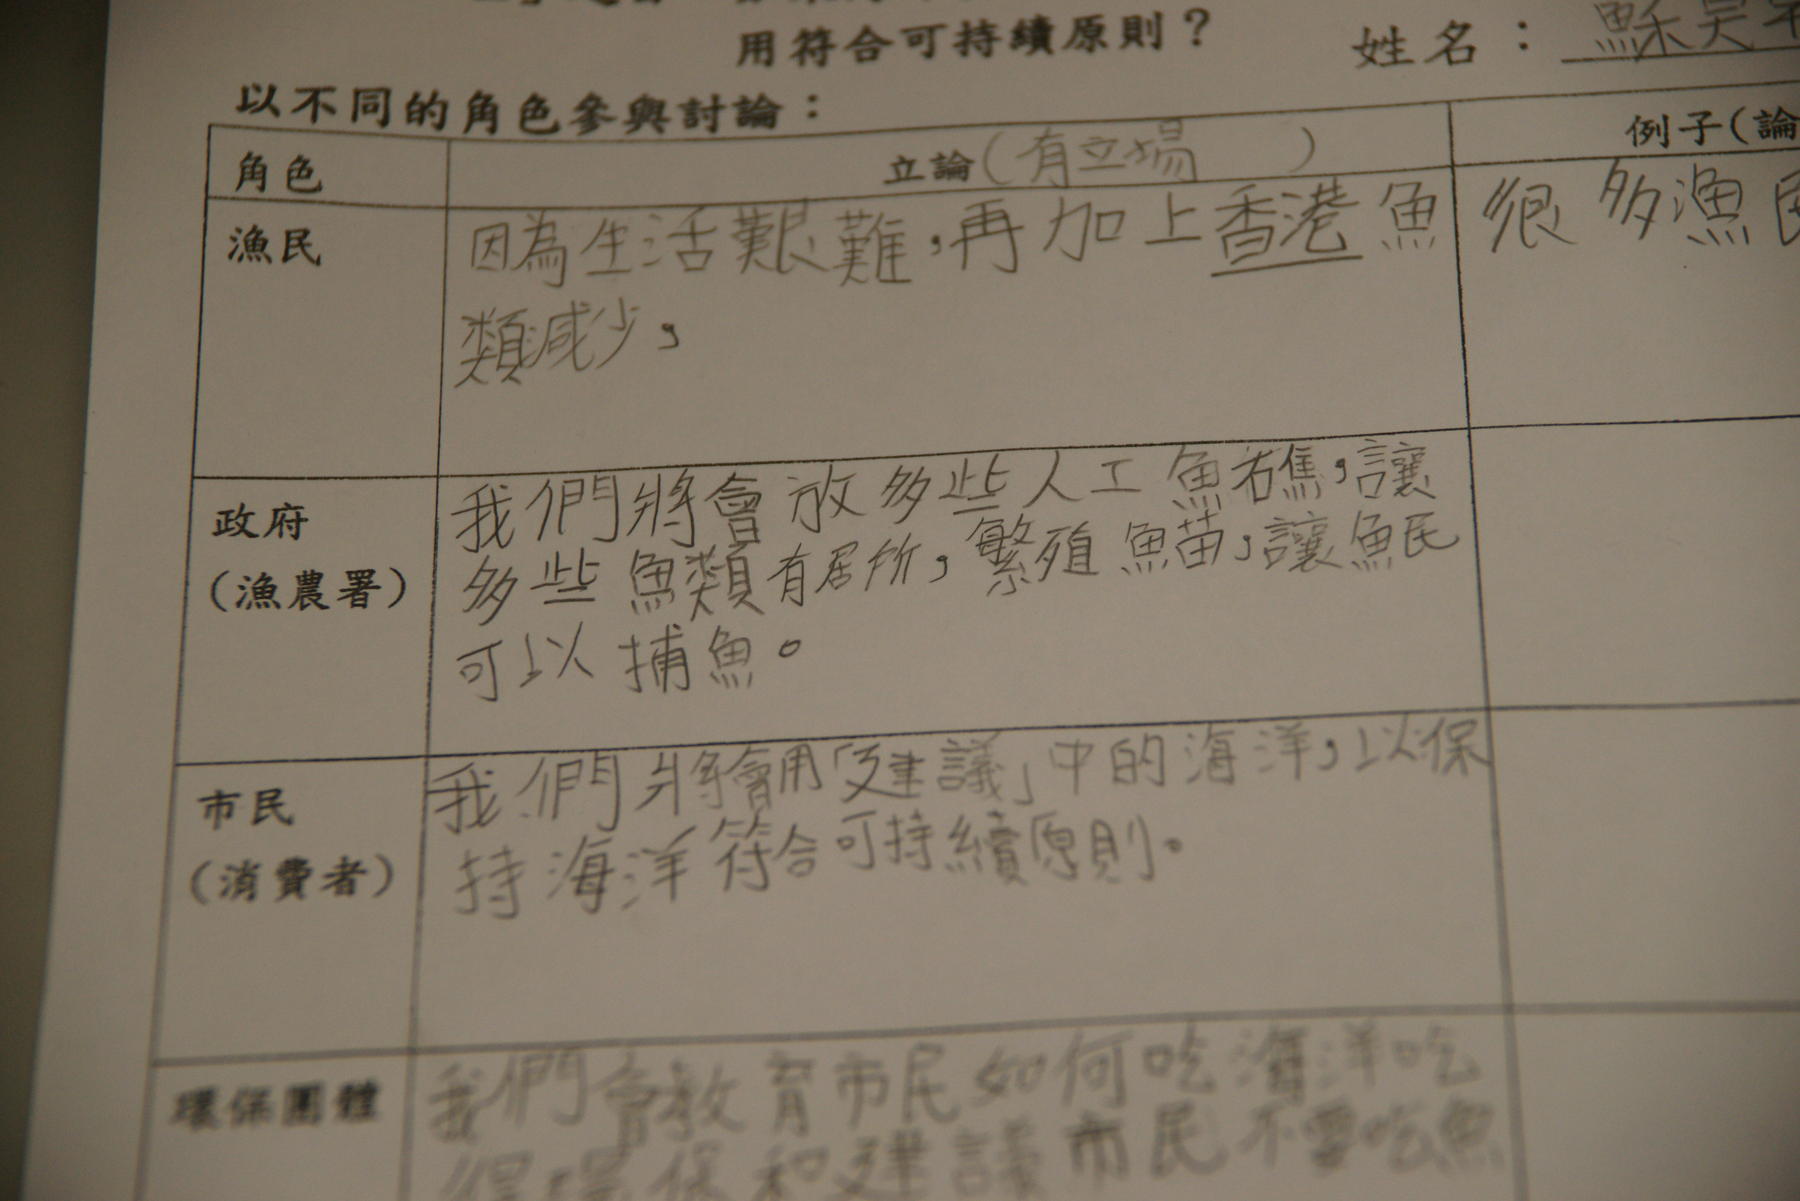 用符合可持續原則？
姓名：蘇吳
以不同的角色參與討論：
角色
立論(有立場)
例子(論
漁民
因為生活艱難，再加上香港魚
類減少，
很多漁民
政府
(漁農署)
我們將會放多些人工魚礁，讓
多些魚類有居所，繁殖魚苗，讓魚民
可以捕魚。
市民
(消費者)
我們將會用「建議」中的海洋，以保
持海洋符合可持續原則。
環保團體
我們會教育市民如何吃海洋吃
得環保和建議市民不要吃魚